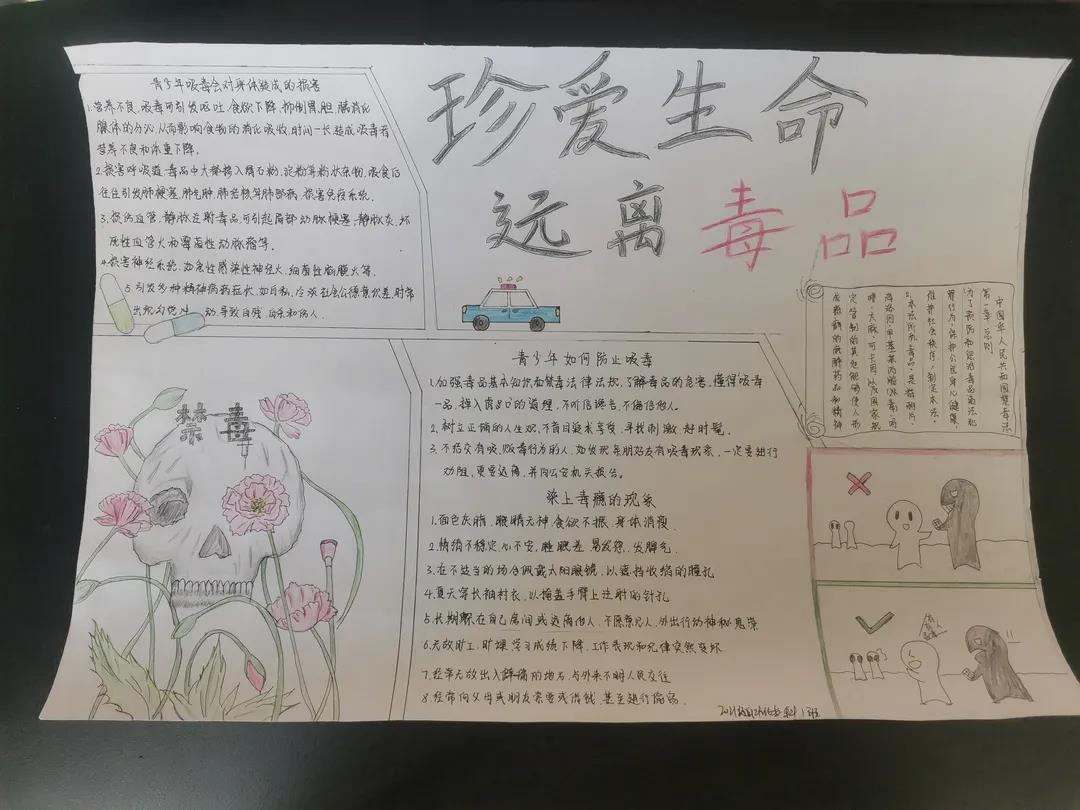 珍爱生命
远离毒品
青少年吸毒会对身体造成的损害
1.营养不良,吸毒可引发呕吐,食欲下降,抑制胃、胆、胰消化
腺体的分泌,从而影响食物的消化吸收,时间一长,造成吸毒者
营养不良和体重下降。
2.损害呼吸道,毒品中大都掺入滑石粉,淀粉等粉状杂物,吸食后
往往引发肺梗塞,肺气肿,肺结核等肺部病,损害免疫系统.
3.损伤血管,静脉注射毒品,可引起局部动脉梗塞,静脉炎,坏
死性血管火和霉菌性动脉瘤等.
4.损害神经系统,如急性感染性神经火,细菌性脑膜火等.
5.引发多种精神病病症状,如自私,冷漠社会公德意识差,时常
出现幻觉 动,导致自残,自杀和伤人.
中国华人民共和国禁毒法
第一章 总则
1.为了预防和惩治毒品违法犯
罪行为,保护公民身心健康,
维护社会秩序,制定本法,
2.本法所称毒品,是指鸦片,
海洛因,甲基苯丙胺(冰毒),吗
啡,大麻,可卡因,以及国家规
定管制的其他能够使人形
成瘾癖的麻醉药品和精神
禁毒
青少年如何防止吸毒
1.加强毒品基本知识和禁毒法律法规,了解毒品的危害,懂得“吸毒
一品,掉入虎口”的道理,不听信谗言,不偏信他人.
2.树立正确的人生观,不盲目追求享受,寻找刺激,赶时髦.
3.不结交有吸,贩毒行为的人,如发现亲朋好友有吸毒现象,一定要进行
劝阻,更要远离,并向公安机关报告.
染上毒瘾的现象
1.面色灰暗,眼睛无神,食欲不振,身体消瘦.
2.情绪不稳定,心不安,睡眠差,易发怒,发脾气.
3.在不适当的场合佩戴太阳眼镜,以遮挡收缩的瞳孔
4.夏天穿长袖衬衣,以掩盖手臂上注射的针孔
5.长期躲在自己房间或远离他人,不愿见人,外出行动神秘鬼祟
6.无故旷工,旷课,学习成绩下降,工作表现和纪律突然变坏
7.经常无故出入偏僻的地方,与外来不明人员交往
8.经常向父母或朋友索要或借钱,甚至进行偷窃.